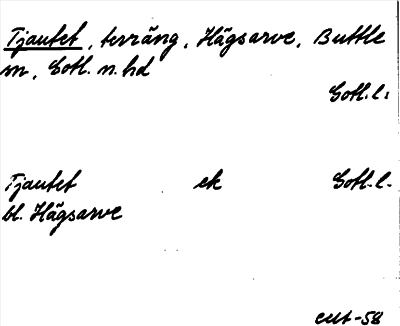 Tjautet, terräng, Hägsarve, Buttle
sn, Gotl. n. hd
Gotl. l.
Tjautet ek Gotl. l.
bl. Hägsarve